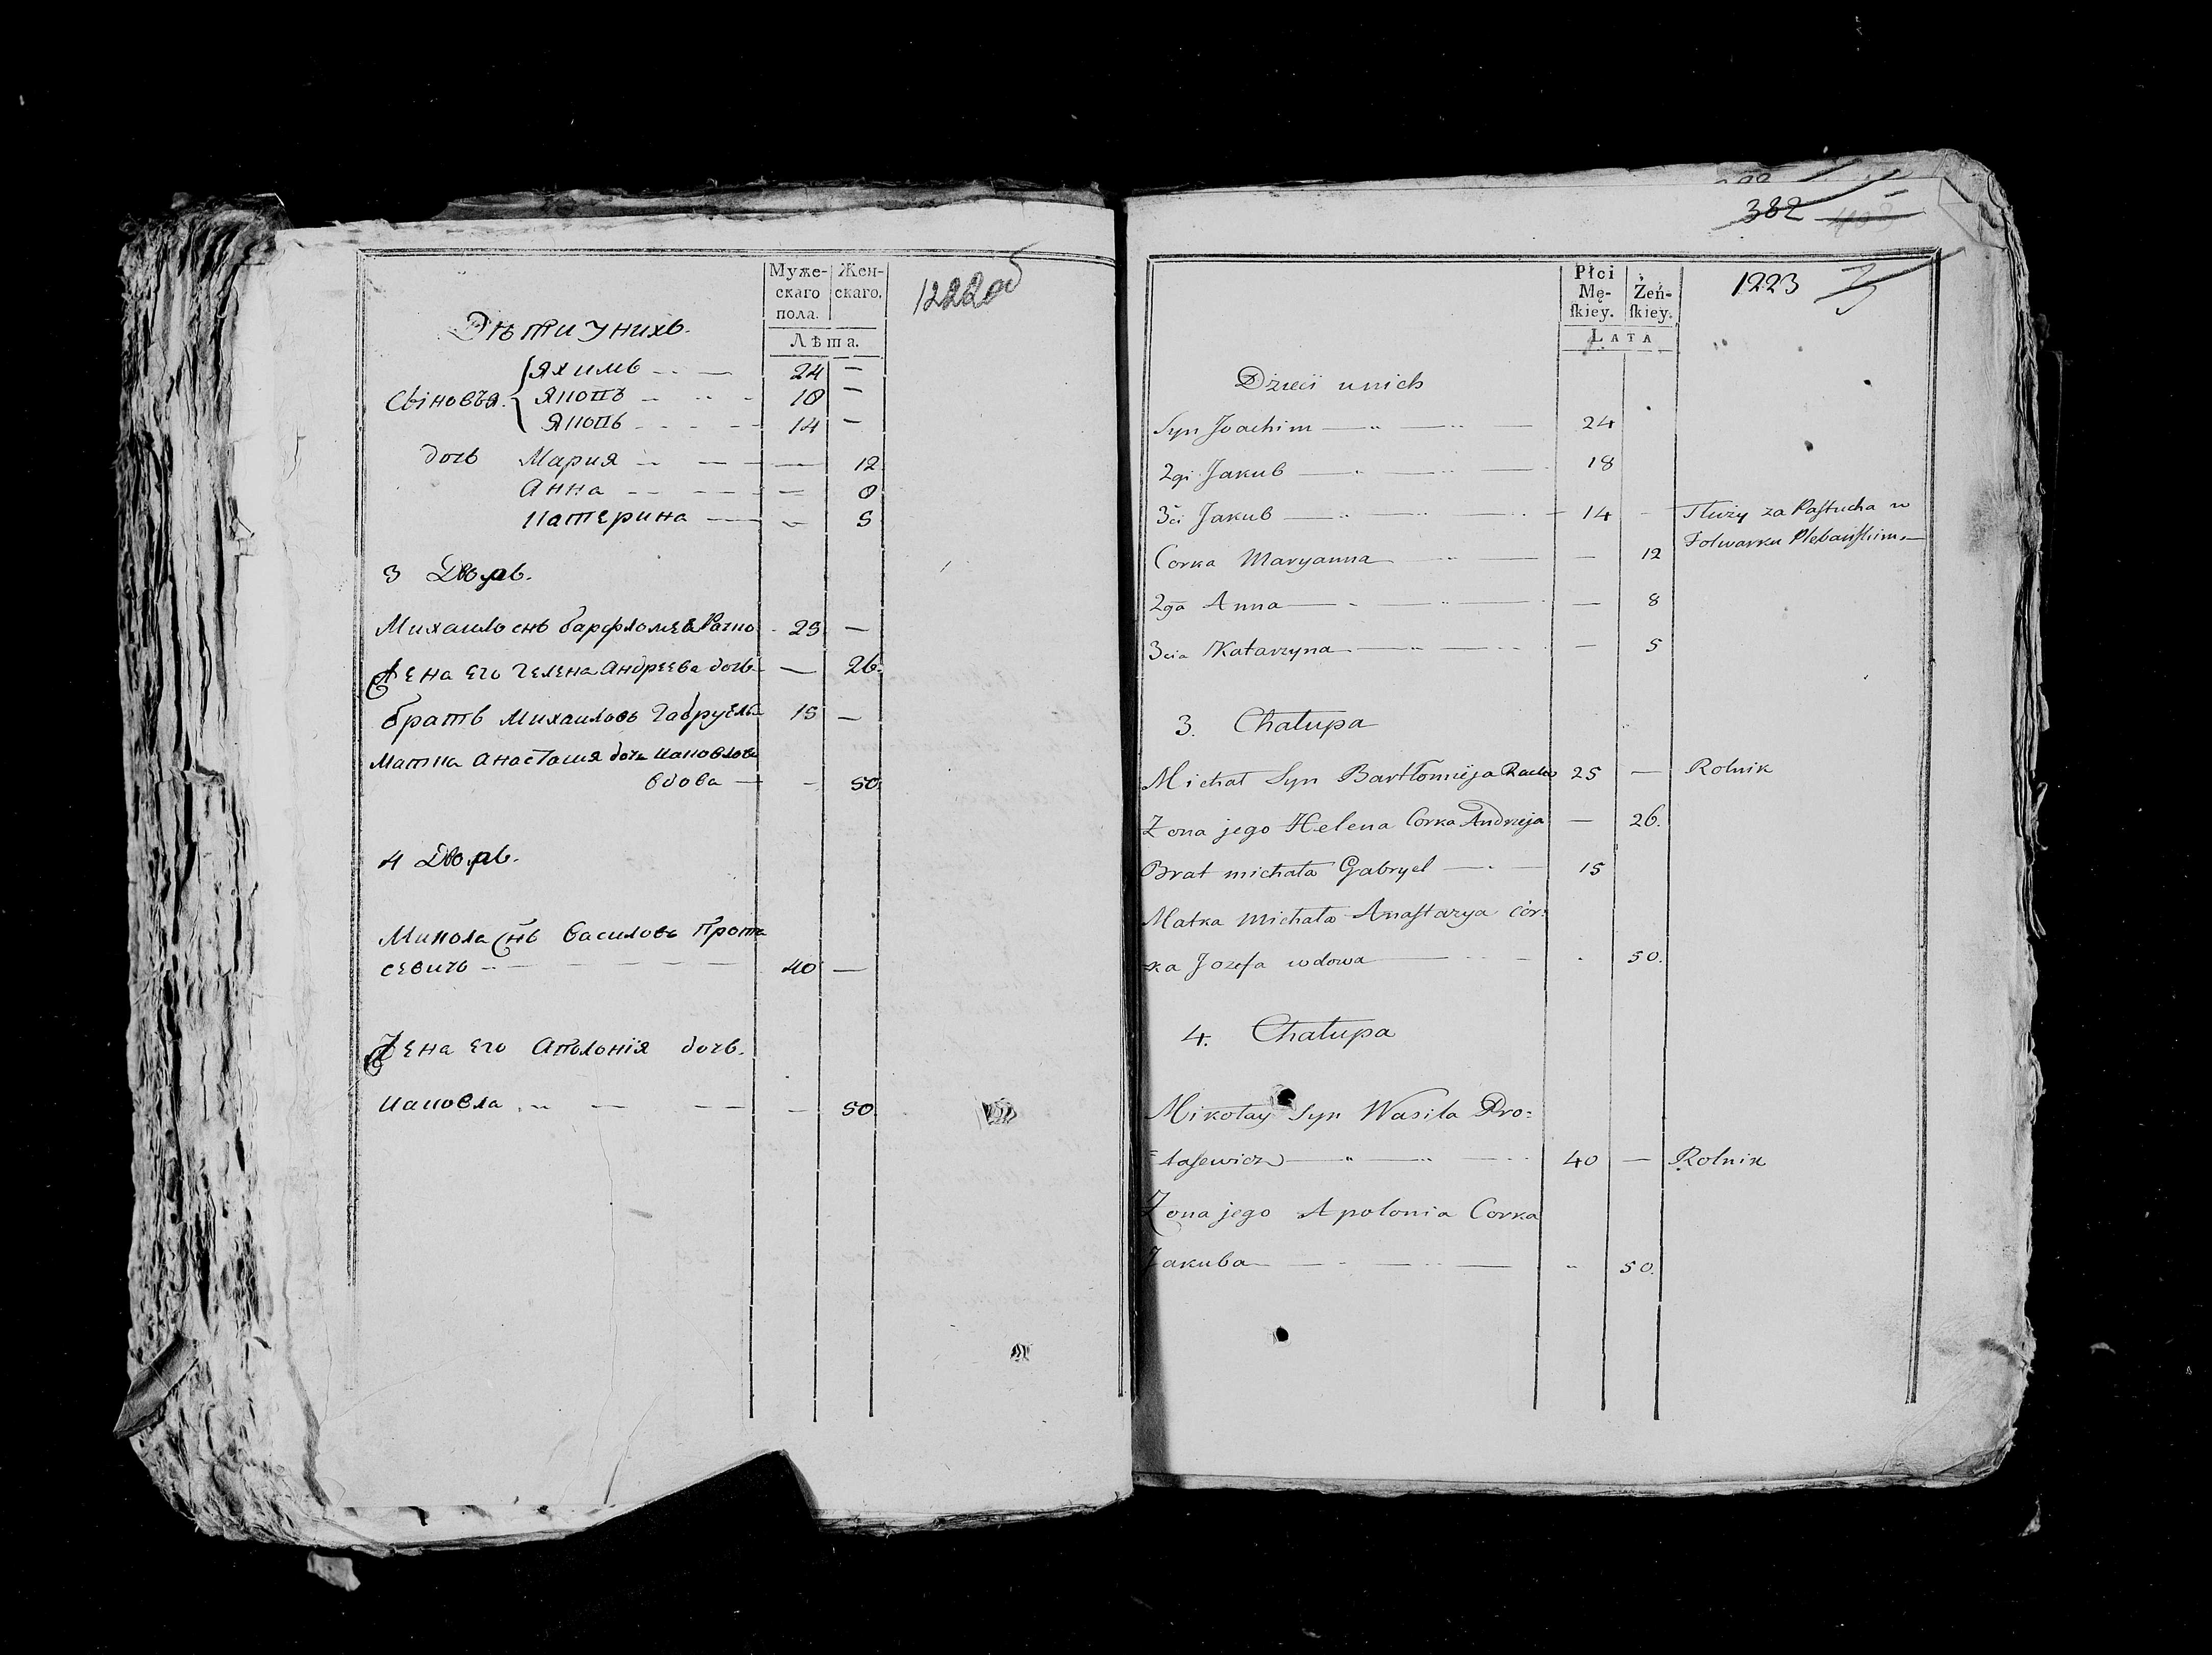 Муже- Жен-
скаго скаго.
пола.
Лѣта.
1222 об
Дѣти у нихъ.
Яхимъ 24 —
Сыновья. Якопъ 18 —
Якопъ 14 —
дочь Мария — 12
Анна — 8
Катерина — 5
3 Дворъ.
Михаило снъ барфломея 25 —
Жена Его Гелена Андреева дочь — 26.
братъ Михаиловъ Габруель 15 —
Матка Анастасия дочь
вдова — 50.
4 Дворъ.
Микола снъ Василовъ Прота
севичъ 40 —
Жена Его Аполонія дочь.
50.
382
Płci
Mę- Żeń-
ſkiey. ſkiey.
LATA
1223
Dzieci unich
Syn Joachim 24
2gi Jakub 18
3ci Jakub 14 — Służy za Paſtucha w
Folwarku Plebańſkim.
Corka Maryanna — 12
2ga Anna — 8
3cia Katarzyna — 5
3. Chałupa
Michał Syn Bartłomieja 25 — Rolnik
Zona jego Helena Corka Andrzeja — 26.
Brat michała Gabryel 15
Matka Michała Anaſtazya cór:
ka Jozefa wdowa 50.
4. Chałupa
Mikołay Syn Wasila Pro:
taſewicz 40 — Rolnik
Zona jego Apolonia Corka
Jakuba 50.